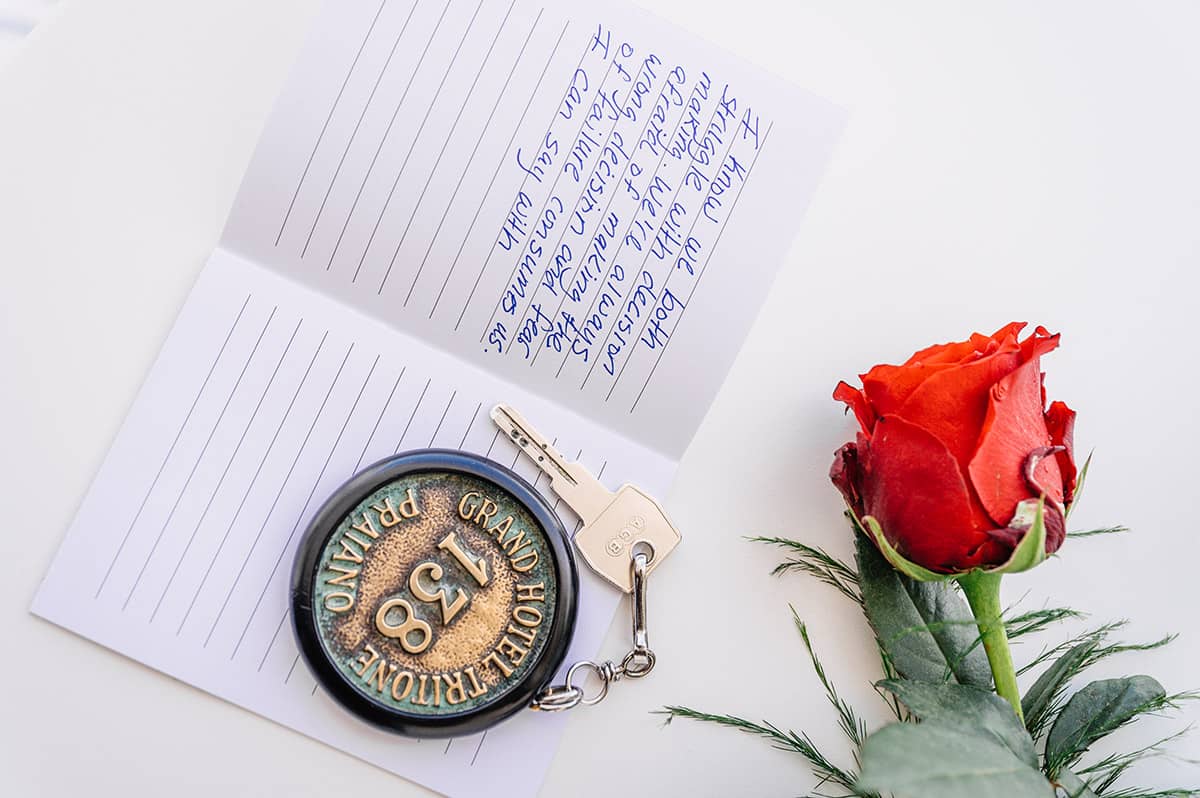 I know we both
struggle with decision
making. We're always
afraid of making the
wrong decision and fear
of failure consumes us.
I can say with
AGB
GRAND HOTEL TRITONE
138
PRAIANO